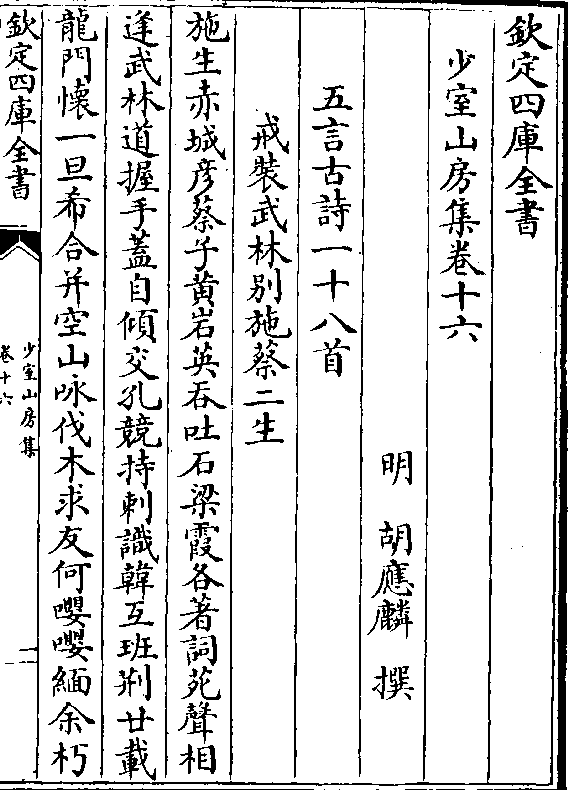 欽定四庫全書
少室山房集卷十六
明 胡應麟 撰
五言古詩一十八首
戒裝武林別施蔡二生
施生赤城彦蔡子黄岩英吞吐石梁霞各著詞苑聲相
逢武林道握手蓋自傾交孔競持刺識韓互班荆廿載
龍門懷一旦希合并空山咏伐木求友何嚶嚶緬余朽
欽定四庫全書
少室山房集
卷十六
一